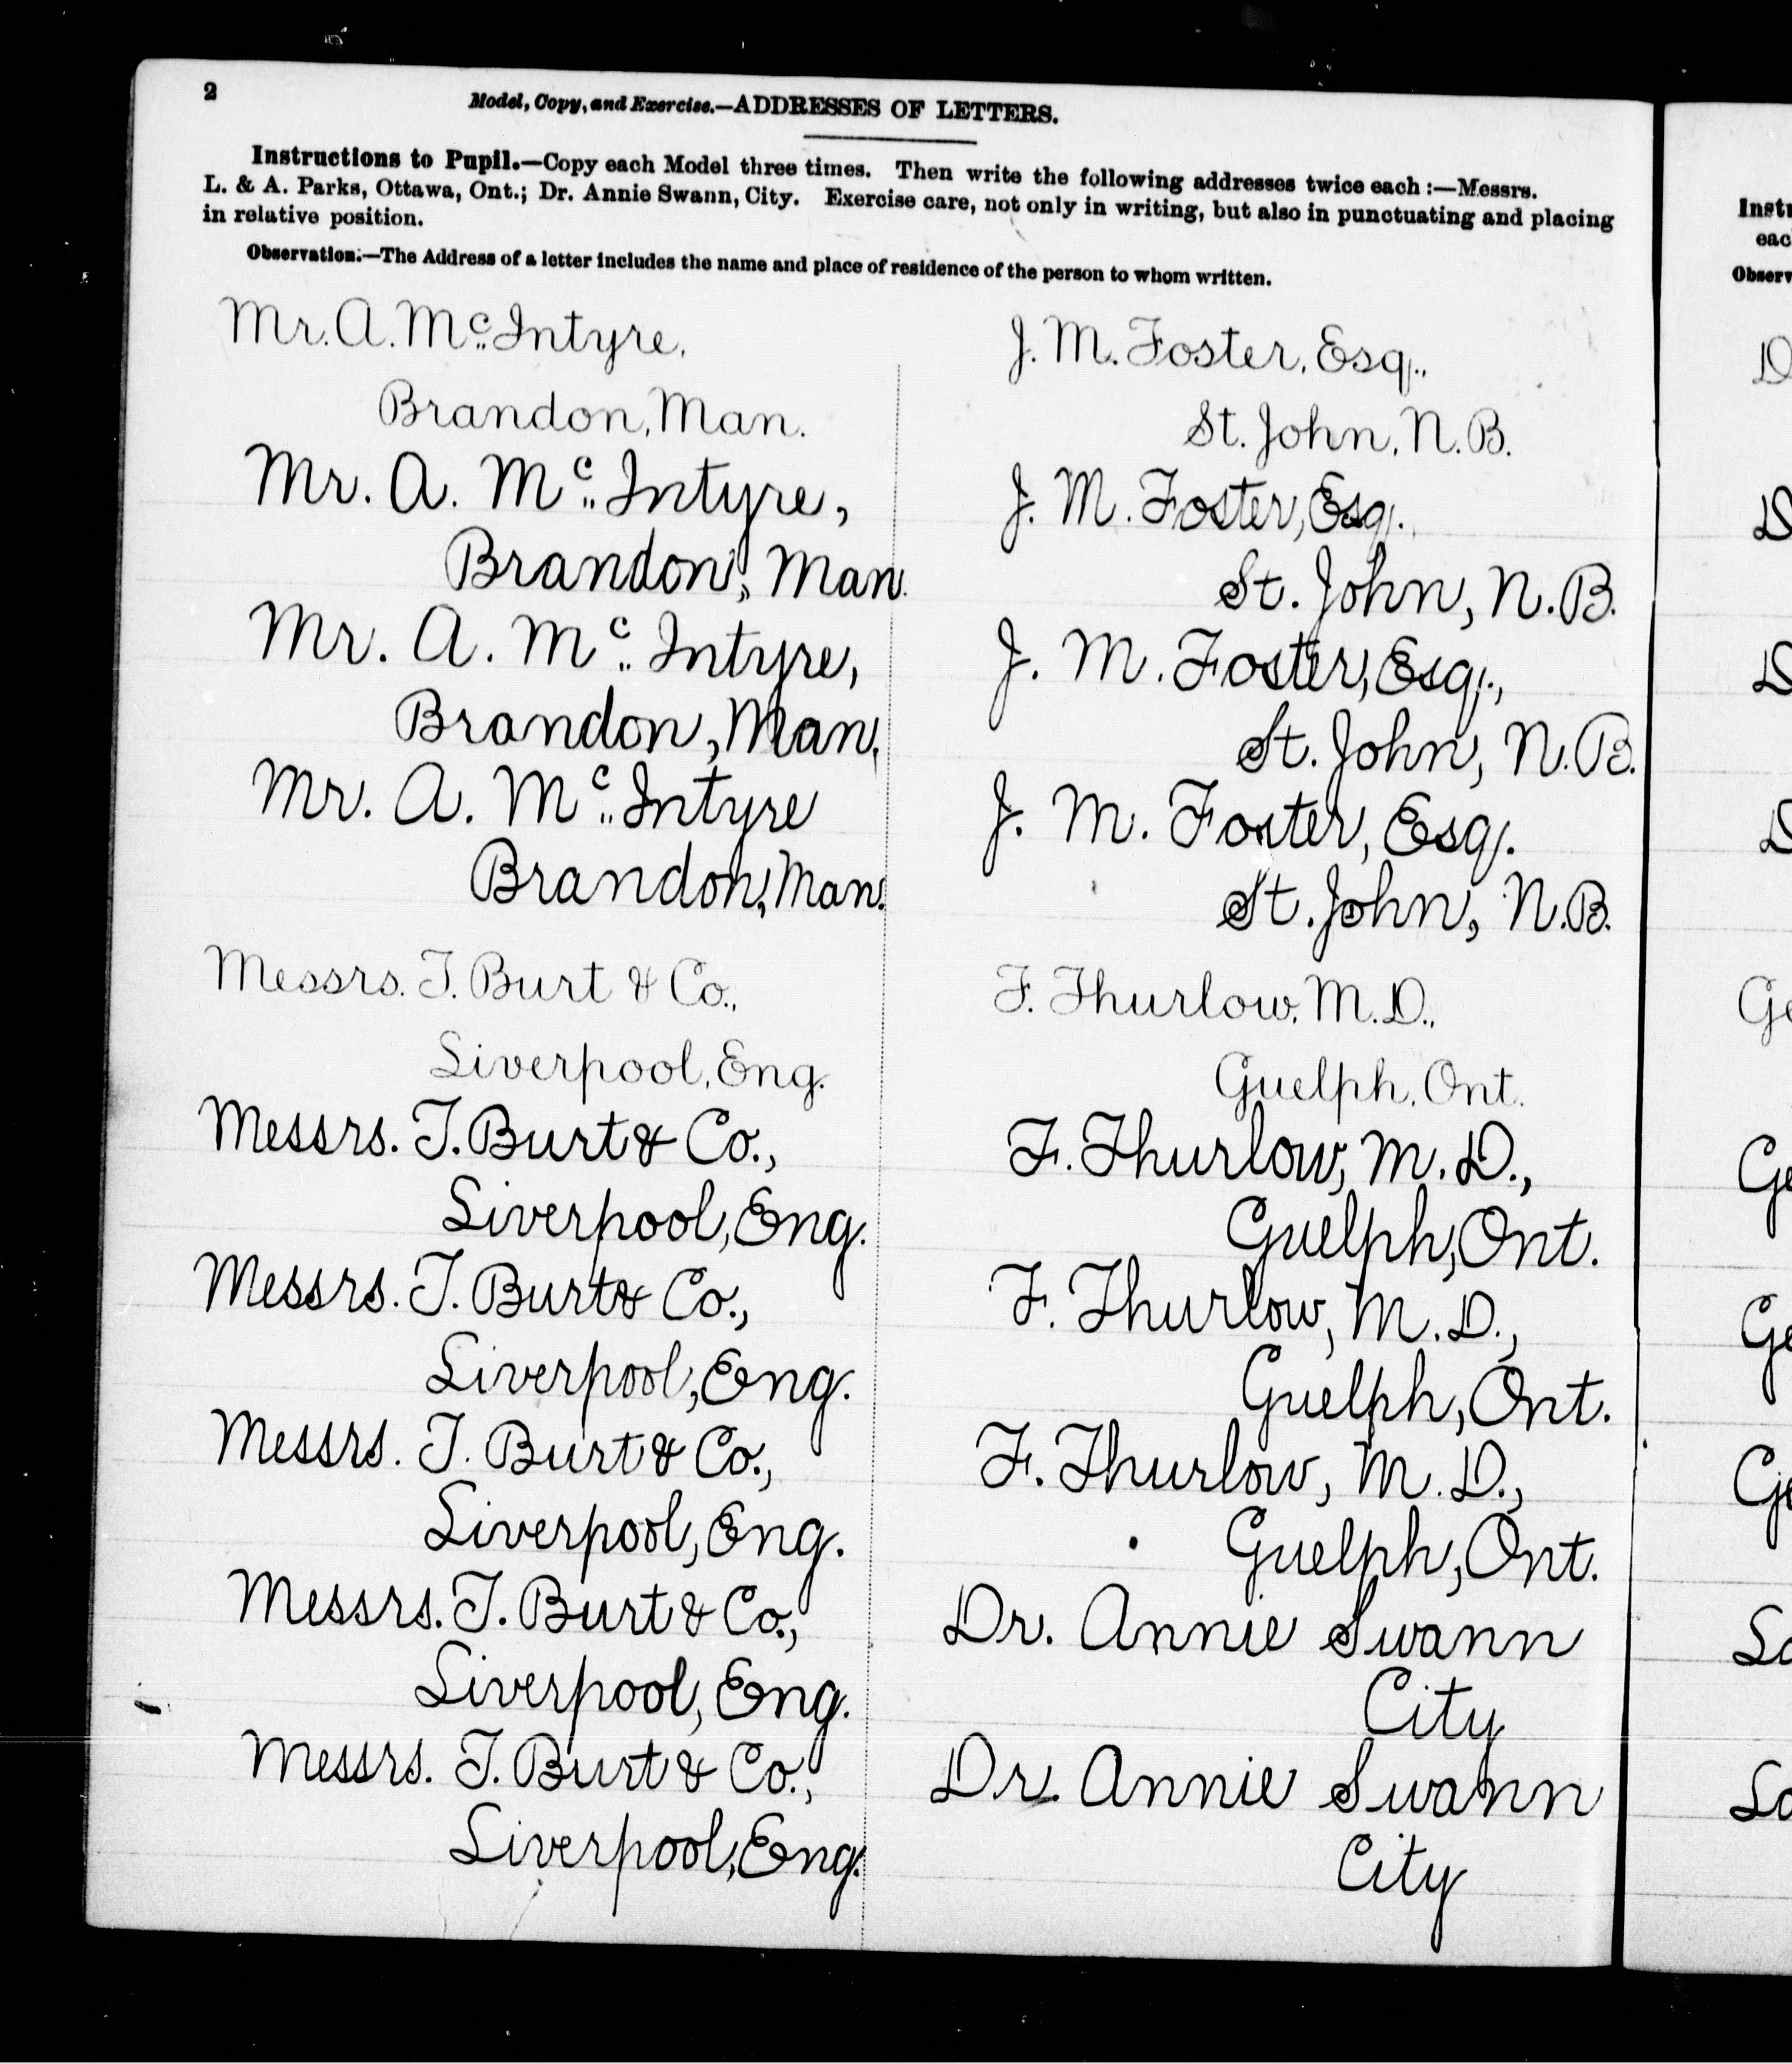 2
Model, Copy, and Exercise.—ADDRESSES OF LETTERS.
Instructions to Pupil.—Copy each Model three times. Then write the following addresses twice each :—Messrs.
L. & A. Parks, Ottawa, Ont.; Dr. Annie Swann, City. Exercise care, not only in writing, but also in punctuating and placing
in relative position.
Observation.—The Address of a letter includes the name and place of residence of the person to whom written.
Mr. A. Mc. Intyre,
Brandon, Man.
Mr. A. Mc. Intyre,
Brandon, Man.
Mr. A. Mc. Intyre,
Brandon, Man.
Mr. A. Mc. Intyre
Brandon, Man.
Messrs. T. Burt & Co.,
Liverpool, Eng.
Messrs. T. Burt & Co.,
Liverpool, Eng.
Messrs. T. Burt & Co.,
Liverpool, Eng.
Messrs. T. Burt & Co.,
Liverpool, Eng.
Messrs. T. Burt & Co.,
Liverpool, Eng.
Messrs. T. Burt & Co.,
Liverpool, Eng.
J. M. Foster, Esq.,
St. John, N.B.
J. M. Foster, Esq.
St. John, N.B.
J. M. Foster, Esq.,
St. John, N.B.
J. M. Foster, Esq.
St. John, N.B.
F. Thurlow, M.D.,
Guelph, Ont.
F. Thurlow, M.D.,
Guelph, Ont.
F. Thurlow, M.D.,
Guelph, Ont.
F. Thurlow, M.D.,
Guelph, Ont.
Dr. Annie Swann
City
Dr. Annie Swann
City